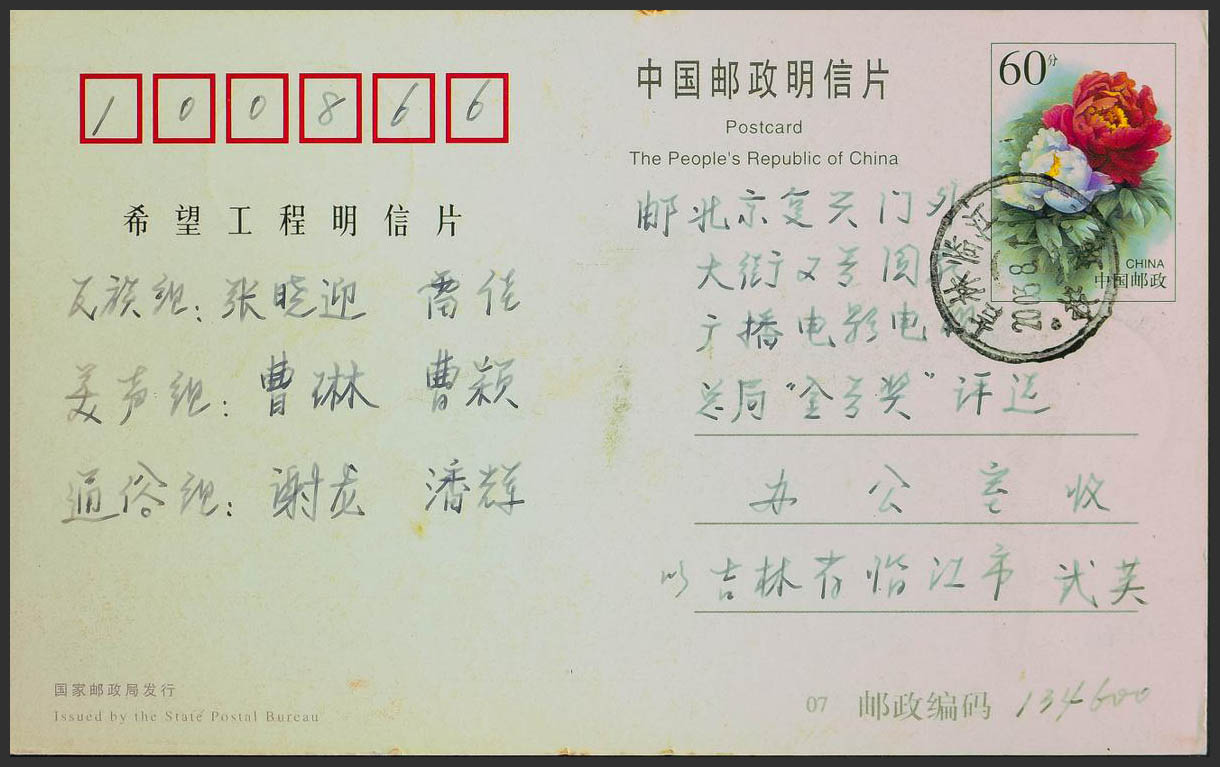 100866
中国邮政明信片
Postcard
The People's Republic of China
60分
CHINA
中国邮政
吉林临江
2003 8
希望工程明信片
民族组：张晓迎 雷佳
美声组：曹琳 曹颖
通俗组：谢 潘辉
邮北京复兴门外
大街2号国
广播电影电视
总局“金号奖”评选
办公室收
吉林省临江市 武英
国家邮政局发行
Issued by the State Postal Bureau
07 邮政编码 134600